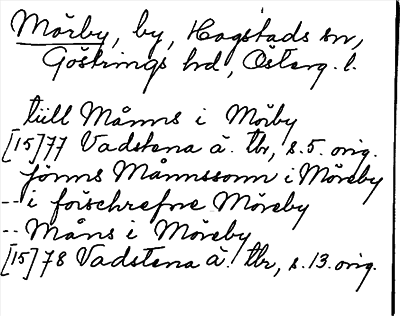 Mörby, by, Hogstads sn,
Göstrings hd, Österg. l.
tiill Månns i Mörby
[15]77 Vadstena ä. tbr, s. 5. orig.
jönns Månnssonn i Möreby
-- i förschrefne Möreby
-- Måns i Möreby
[15]78 Vadstena ä. tbr, s. 13. orig.